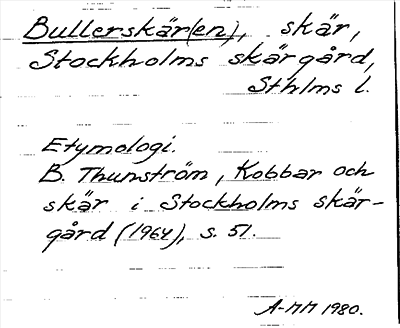 Bullerskär(en), skär,
Stockholms skärgård,
Sthlms l.
Etymologi.
B. Thunström, Kobbar och
skär i Stockholms skär-
gård (1964), s. 51.
A-MM 1980.